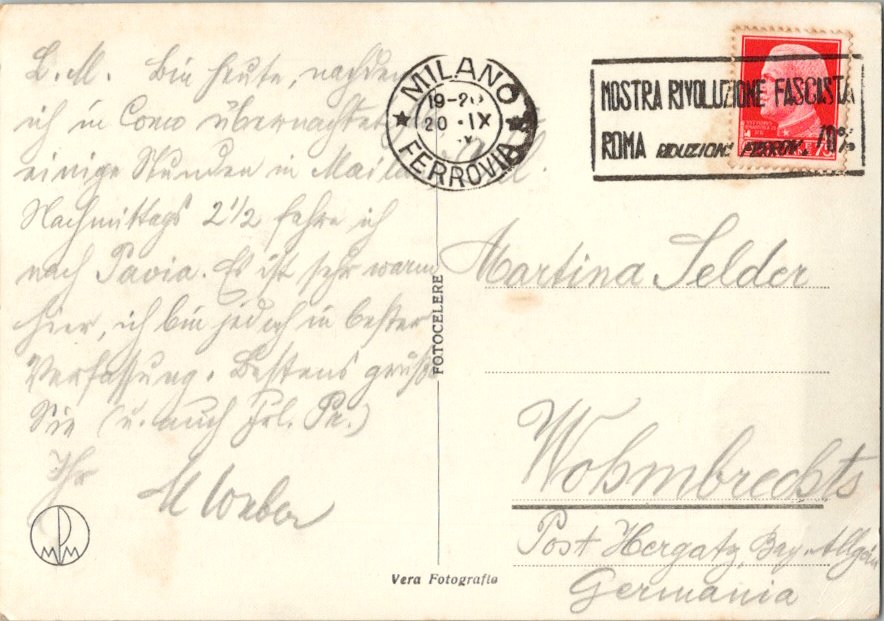 L. M. Bin heute, nachdem
ich in Como übernachtet,
einige Stunden in Mailand.
Nachmittags 2 1/2 fahre ich
nach Pavia. Es ist sehr warm
hier, ich bin jedoch in bester
Verfassung. Bestens grüßt
Sie (u. auch Frl. Pe.)
Ihr
M Weber
MILANO
19-20
20 · IX
FERROVIA
MOSTRA RIVOLUZIONE FASCISTA
ROMA RIDUZIONI FERROV. 70%
Martina Selder
Wohmbrechts
Post Hergatz, Bay. Allgäu
Germania
FOTOCELERE
Vera Fotografia